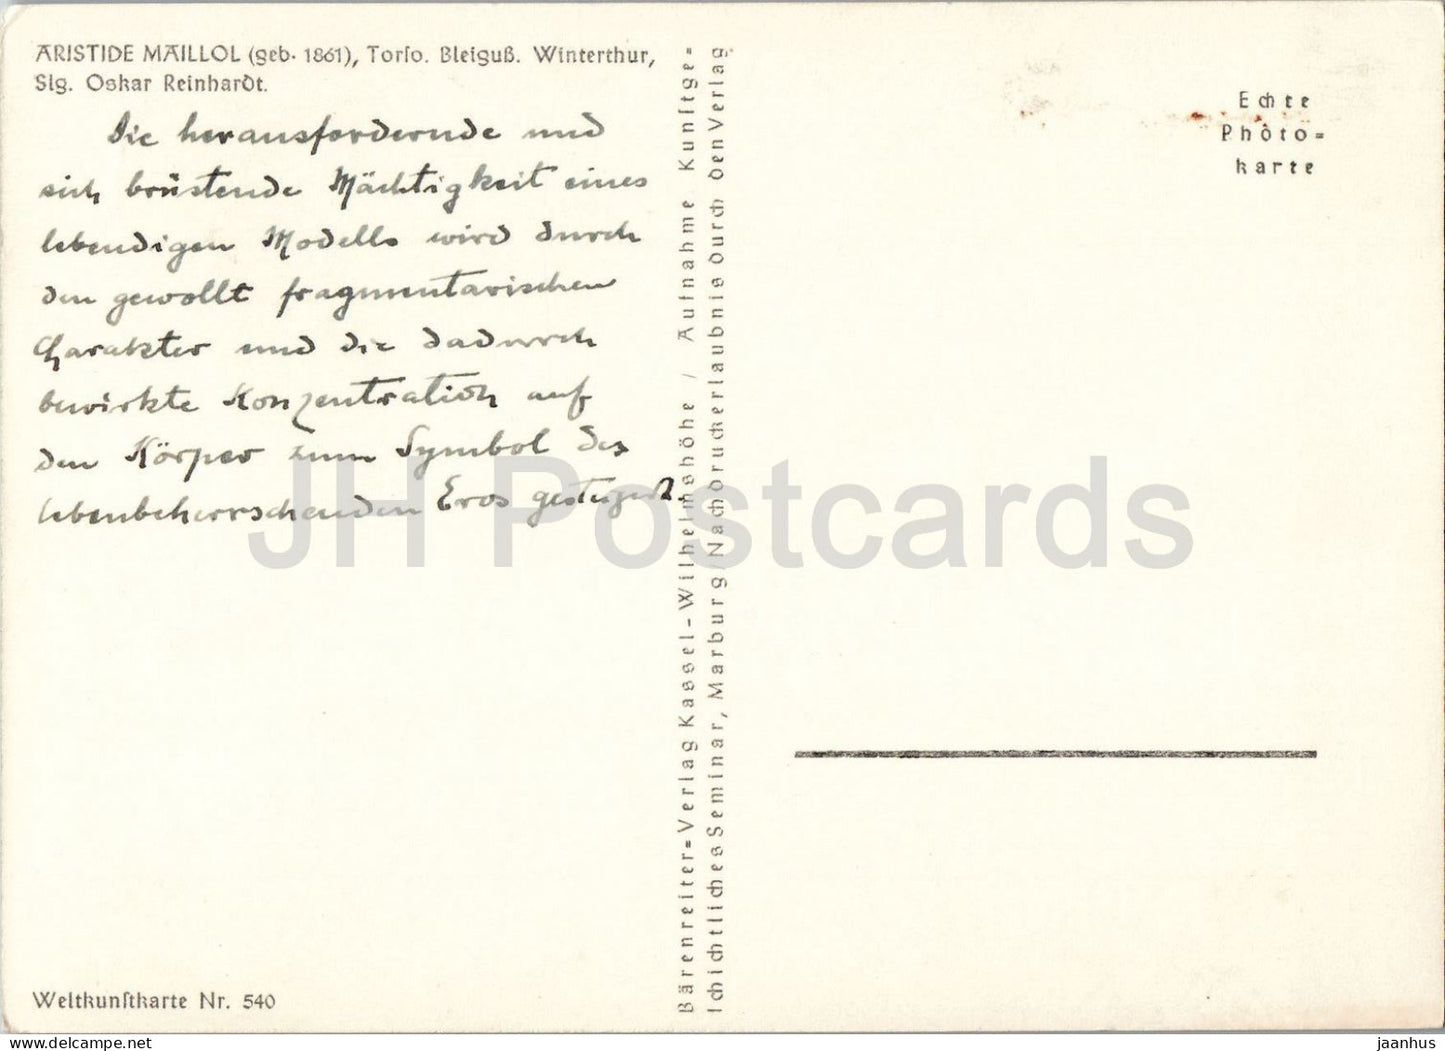 ARISTIDE MAILLOL (geb. 1861), Torſo. Bleiguß. Winterthur,
Slg. Oskar Reinhardt.
Die herausfordernde und
sich brüstende Mächtigkeit eines
lebendigen Modells wird durch
den gewollt fragmentarischen
Charakter und die dadurch
bewirkte Konzentration auf
den Körper zum Symbol des
lebenbeherrschenden Eros gesteigert
Weltkunſtkarte Nr. 540
Bärenreiter=Verlag Kassel-Wilhelmshöhe / Aufnahme Kunſtge=
ſchichtliches Seminar, Marburg/Nachdruckerlaubnis durch den Verlag
Echte
Photo=
karte
JH Postcards
jaanhus
https://www.delcampe.net